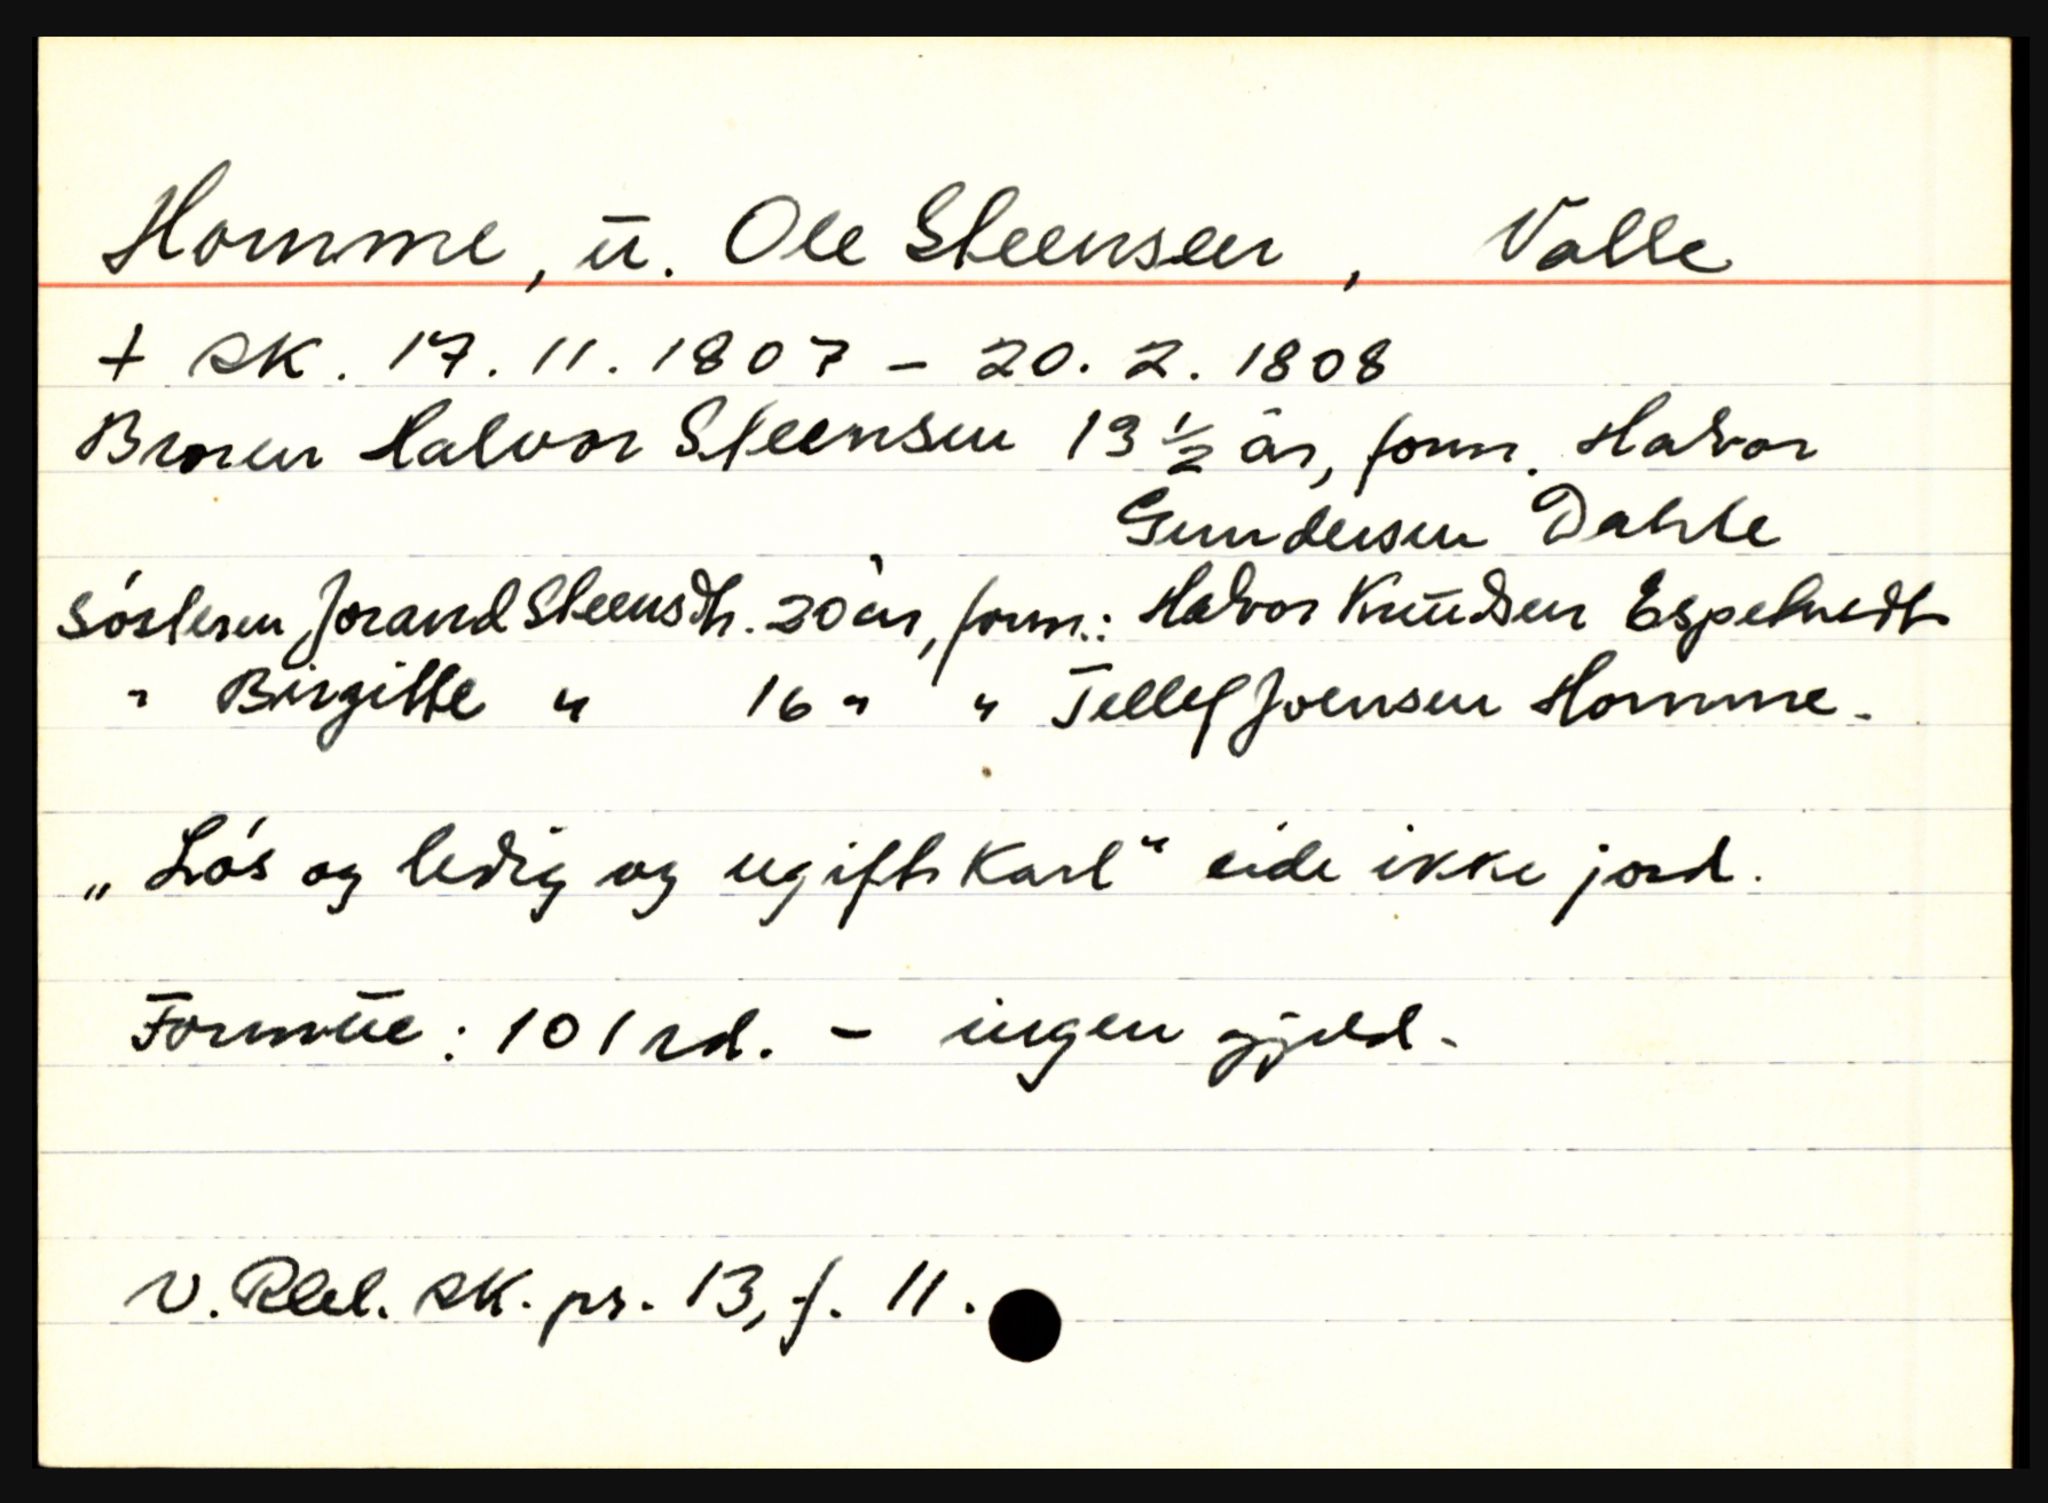 Homme, u. Ole Steensen, Valle
+ sk. 17.11.1807 - 20.2.1808
Broren Halvor Steensen 13 ½ år, form. Halvor
Gundersen Dahle
Søsteren Jorand Steensdtr. 20 år, form.: Halvor Knudsen Espetvedt
" Birgitte " 16 " " Tellef Joensen Homme.
„Løs og ledig og ugift Karl" eide ikke jord.
Formue: 101 rd. - ingen gjeld.
V. Rbl. sk. pr. 13, f. 11.